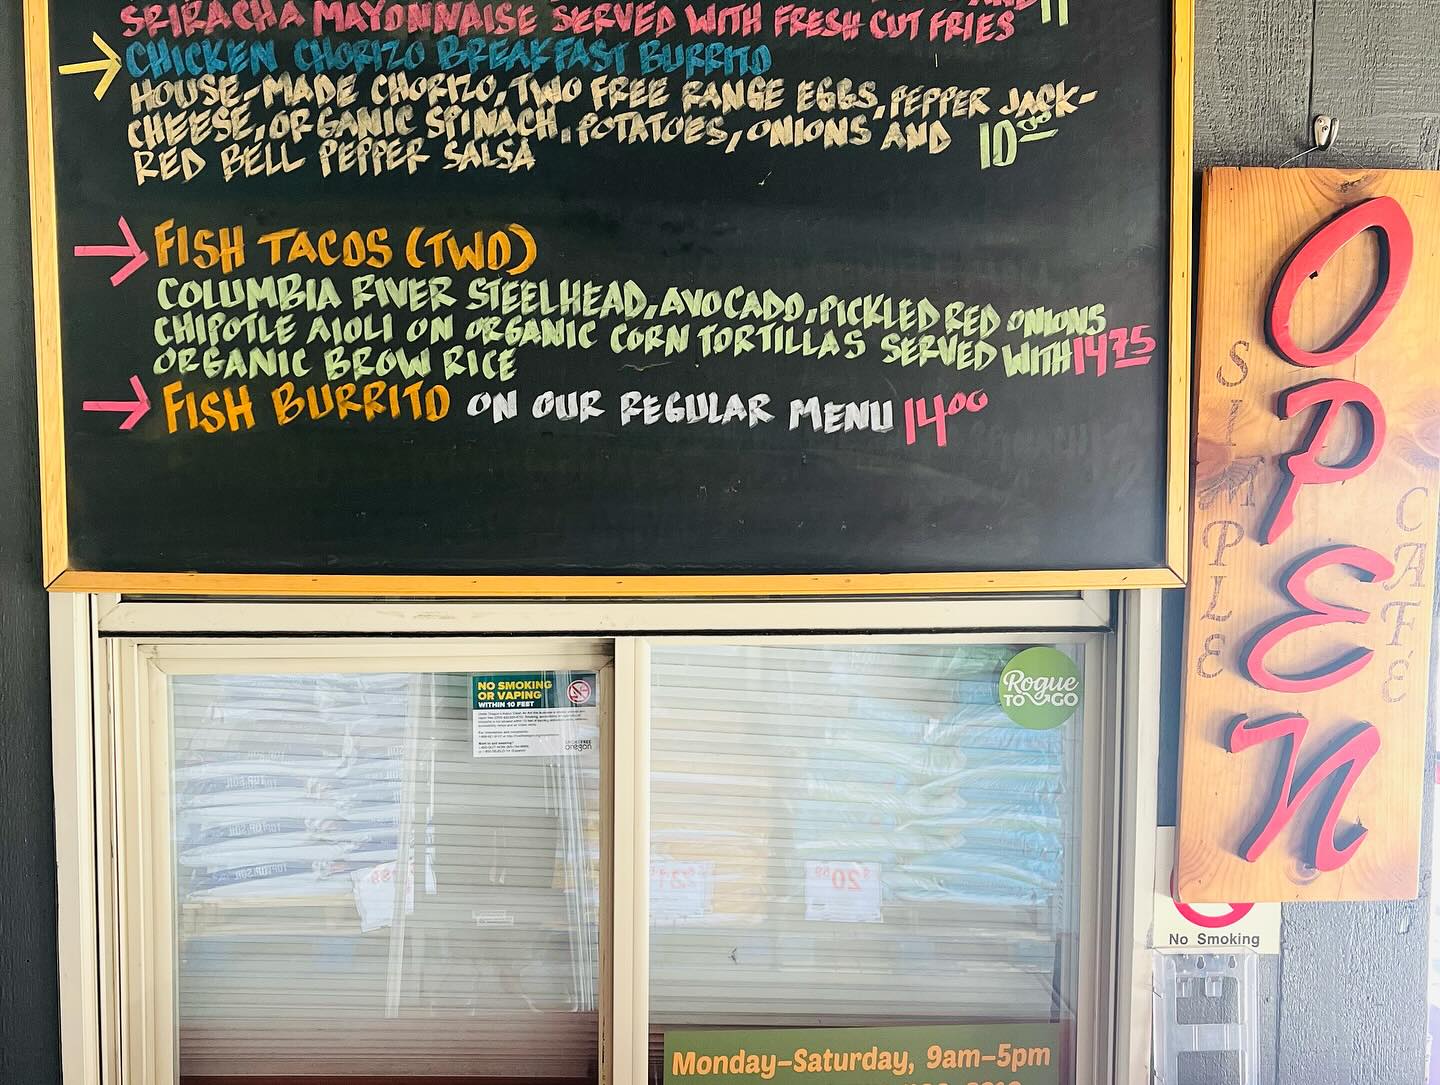 SRIRACHA MAYONNAISE SERVED WITH FRESH CUT FRIES
CHICKEN CHORIZO BREAKFAST BURRITO
HOUSE-MADE CHORIZO, TWO FREE RANGE EGGS, PEPPER JACK-
CHEESE, ORGANIC SPINACH, POTATOES, ONIONS AND 10.00
RED BELL PEPPER SALSA
FISH TACOS (TWO)
COLUMBIA RIVER STEELHEAD, AVOCADO, PICKLED RED ONIONS
CHIPOTLE AIOLI ON ORGANIC CORN TORTILLAS SERVED WITH 14 75
ORGANIC BROW RICE
FISH BURRITO ON OUR REGULAR MENU 14 00
OPEN
SIMPLE
CAFÉ
NO SMOKING
OR VAPING
WITHIN 10 FEET
oregon
Rogue
TO GO
$20
No Smoking
Monday–Saturday, 9am–5pm